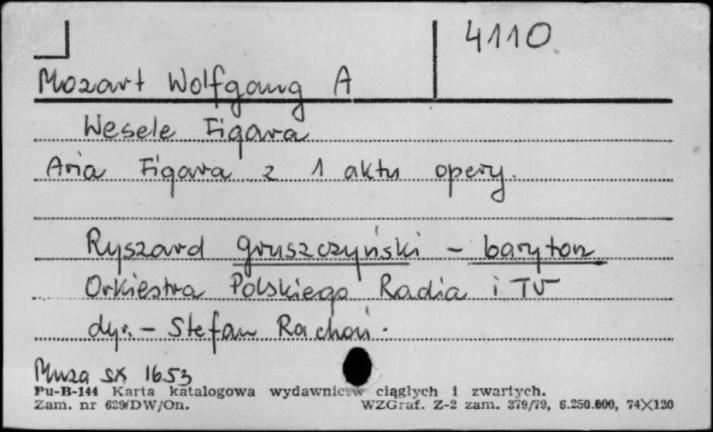 4110
Mozart Wolfgang A
Wesele Figara
Aria Figara z 1 aktu opery.
Ryszard Gruszczyński – baryton
Orkiestra Polskiego Radia i TV
dyr. – Stefan Rachoń.
Muza SX 1653
Pu-B-144 Karta katalogowa wydawnictw ciągłych i zwartych.
Zam. nr 629/DW/On. WZGraf. Z-2 zam. 379/79, 6.250.000, 74×120